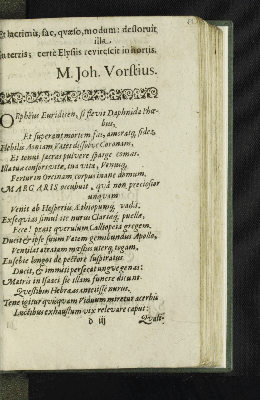 Et lacrimis, fac, quæso, modum: defloruit
illa
in terris; certè Elysiis revirescit in hortis.
M. Joh. Vorstius.
ORphêus Euridicen, si flevit Daphnida Phœ-
bus,
Et superant mortem fas, amorâq́, fides,
Flebilis Aoniam Vates dissolve Coronam,
Et tenui sacras pulvere sparge comas.
Illa tuæ consors vitæ, tua vita, Venusq́,
Fertur in Orcinam corpus inane domum,
MARGARIS occubuit, quâ non preciosior
unquam
Venit ab Hesperiis Æthiopumq́, vadis.
Exsequias simul ite nurus Clariæq́, puellæ,
Ecce! præit querulum Calliopeia gregem.
Ducit & ipse suum Vatem gemibundus Apollo,
Ventilat atratam mæstus uterq́, togam,
Eusebie longos de pectore suspiratus
Ducit, & immiti persecat ungue genas:
Matris in Isaaci sic illam funere dicunt
Questibus Hebræas anteiisse nurus.
Tene igitur quisquam Viduum miretur acerbis
Luctibus exhaustum vix relevare caput:
d iij
Quale